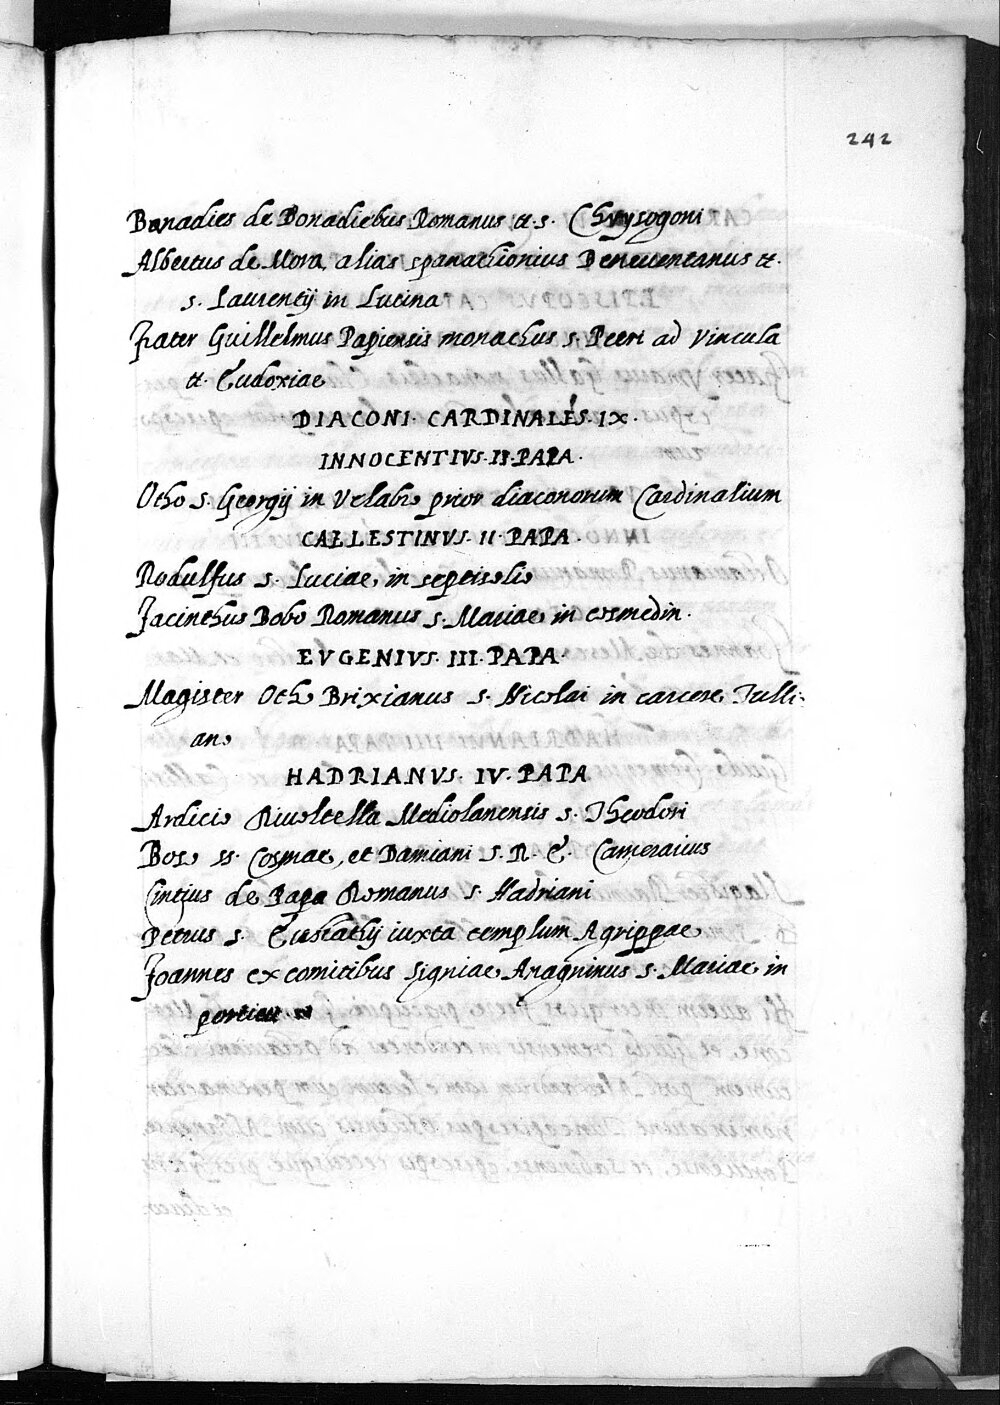 242
Bonadies de Bonadiebus Romanus tt. s. Chrysogoni
Albertus de Mora alias spanachionius Beneuentanus tt.
s. Laurentij in Lucina
Frater Guillelmus Papiensis monachus s. Petri ad Vincula
tt. Eudoxiae
DIACONI. CARDINALES. IX.
INNOCENTIVS. II. PAPA.
Otho s. Georgij in Velabro prior diaconorum Cardinalium
CAELESTINVS. II. PAPA.
Rodulfus s. Luciae in septisolio
Jacinthus Bobo Romanus s. Mariae in cosmedin.
EVGENIVS. III. PAPA.
Magister Otho Brixianus s. Nicolai in carcere Tulli-
ano
HADRIANVS. IV. PAPA
Ardicio Riuoltella Mediolanensis s. Theodori
Boso ss. Cosmae, et Damiani S. R. E. Camerarius
Cintius de Papa Romanus s. Hadriani
Petrus s. Eustathij iuxta templum Agrippae
Joannes ex comitibus Signiae Anagninus s. Mariae in
porticu